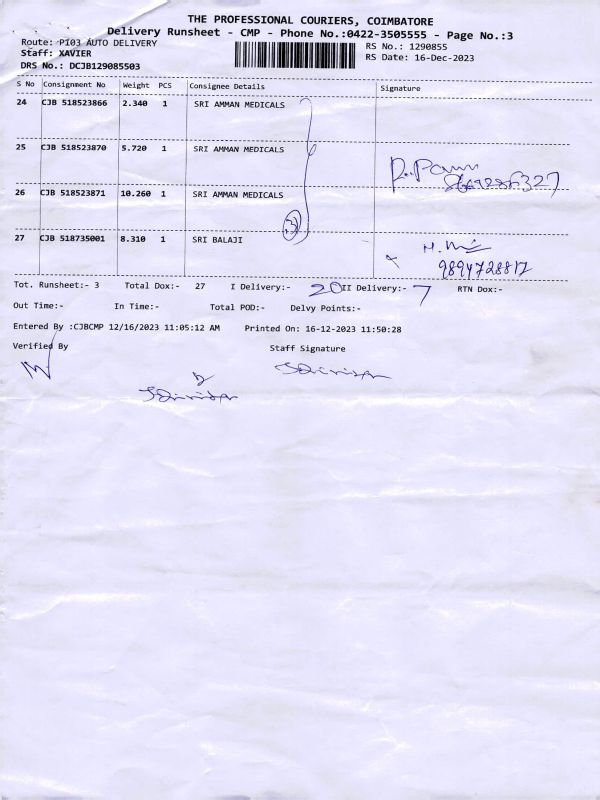 THE PROFESSIONAL COURIERS, COIMBATORE
Delivery Runsheet - CMP - Phone No.:0422-3505555 - Page No.:3
Route: PI03 AUTO DELIVERY
RS No.: 1290855
Staff: XAVIER
RS Date: 16-Dec-2023
DRS No.: DCJB129085503
S No Consignment No Weight PCS Consignee Details Signature
24 CJB 518523866 2.340 1 SRI AMMAN MEDICALS
25 CJB 518523870 5.720 1 SRI AMMAN MEDICALS
26 CJB 518523871 10.260 1 SRI AMMAN MEDICALS
3
27 CJB 518735001 8.310 1 SRI BALAJI
9894728817
Tot. Runsheet:- 3 Total Dox:- 27 I Delivery:- 20 II Delivery:- 7 RTN Dox:-
Out Time:- In Time:- Total POD:- Delvy Points:-
Entered By :CJBCMP 12/16/2023 11:05:12 AM Printed On: 16-12-2023 11:50:28
Verified By Staff Signature